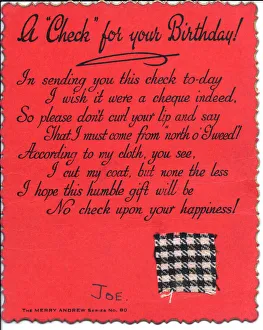 A "Check" for your Birthday!
In sending you this check to-day
I wish it were a cheque indeed,
So please don't curl your lip and say
That I must come from "north o' Tweed!"
According to my cloth, you see,
I cut my coat, but none the less
I hope this humble gift will be
No check upon your happiness!
JOE.
THE MERRY ANDREW SERIES No. 80